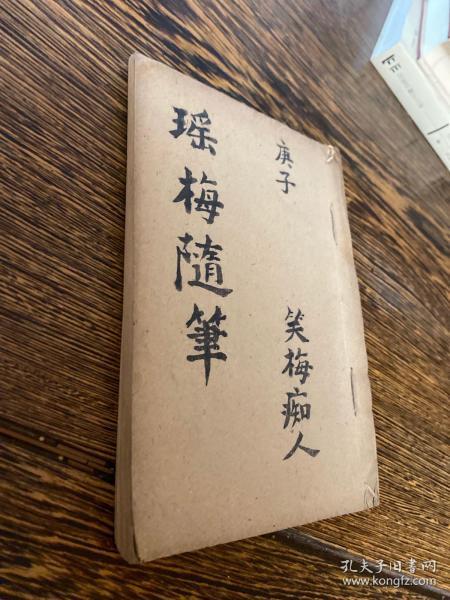 庚子
笑梅痴人
瑶梅隨筆
孔夫子旧书网
www.kongfz.com